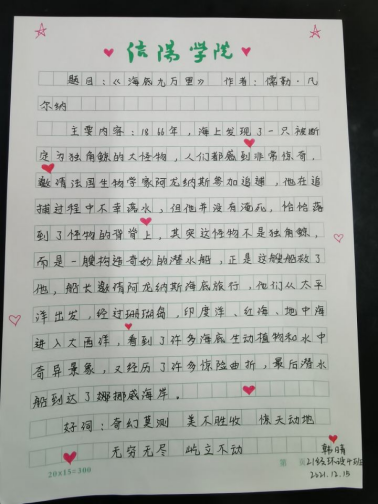 信阳学院
题目：《海底九万里》 作者：儒勒·凡
尔纳
主要内容：1866年，海上发现了一只被断
定为独角鲸的大怪物，人们都感到非常惊奇.
邀请法国生物学家阿龙纳斯参加追逐，他在追
捕过程中不幸落水，但他并没有淹死，恰恰落
到了怪物的脊背上，其实这怪物不是独角鲸，
而是一艘构造奇妙的潜水船，正是这艘船救了
他，船长邀请阿龙纳斯海底旅行，他们从太平
洋出发，经过珊瑚岛，印度洋、红海、地中海
进入大西洋，看到了许多海底生动植物和水中
奇异景象，又经历了许多惊险曲折，最后潜水
船到达了挪挪威海岸。
好词：奇幻莫测 美不胜收 惊天动地
无穷无尽 屹立不动
韩晴
2021.12.15
20×15=300